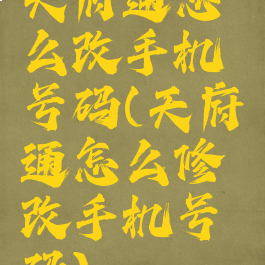 天府通怎
么改手机
号码(天府
通怎么修
改手机号
码)